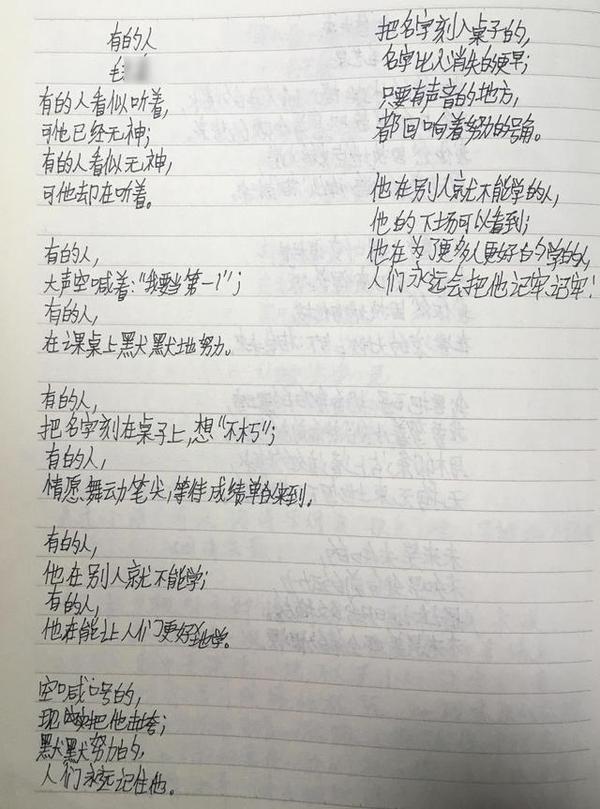 有的人
毛
有的人看似听着,
可他已经无神;
有的人看似无神,
可他却在听着。
有的人,
大声空喊着:"我要当第一!";
有的人,
在课桌上默默地努力。
有的人,
把名字刻在桌子上,想"不朽";
有的人,
情愿舞动笔尖,等待成绩单的来到。
有的人,
他在别人就不能学;
有的人,
他在能让人们更好地学。
空喊口号的,
现实把他击垮;
默默努力的,
人们永远记住他。
把名字刻入桌子的,
名字比人消失的更早;
只要有声音的地方,
都回响着努力的号角。
他在别人就不能学的人,
他的下场可以看到;
他在为了更多人更好的学的人,
人们永远会把他记牢,记牢!